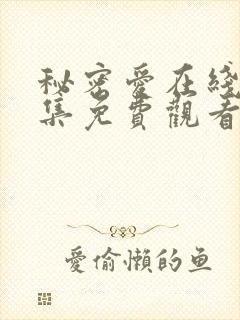 秘密愛在綫
集免費觀看
愛偷懶的鱼